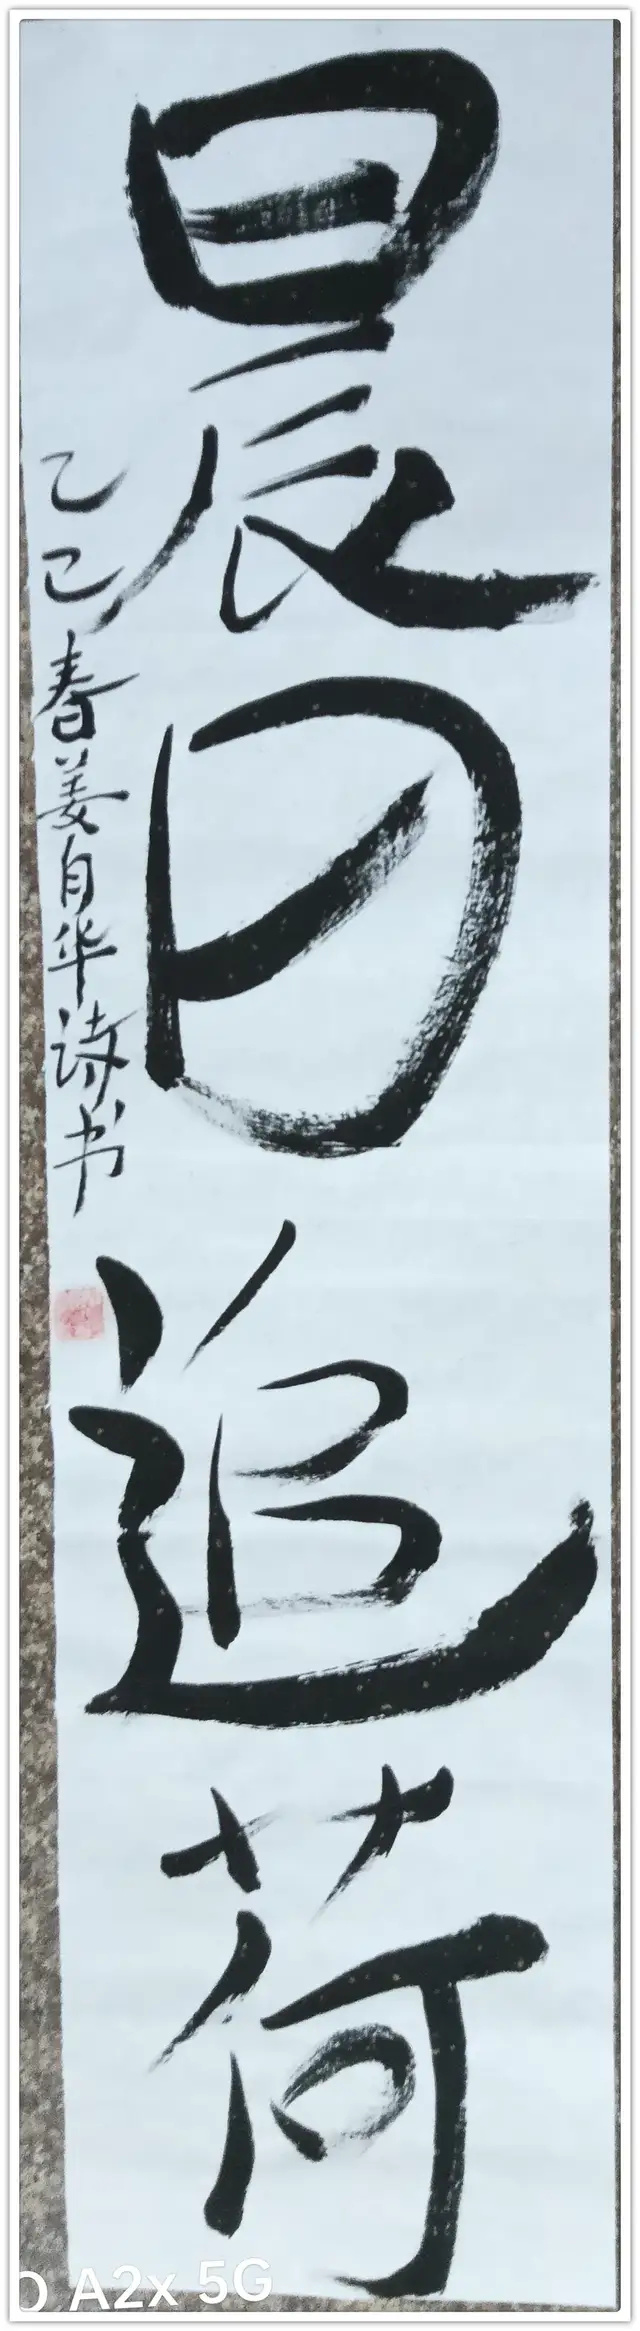 晨日追荷
乙巳春姜自华诗书
A2x 5G